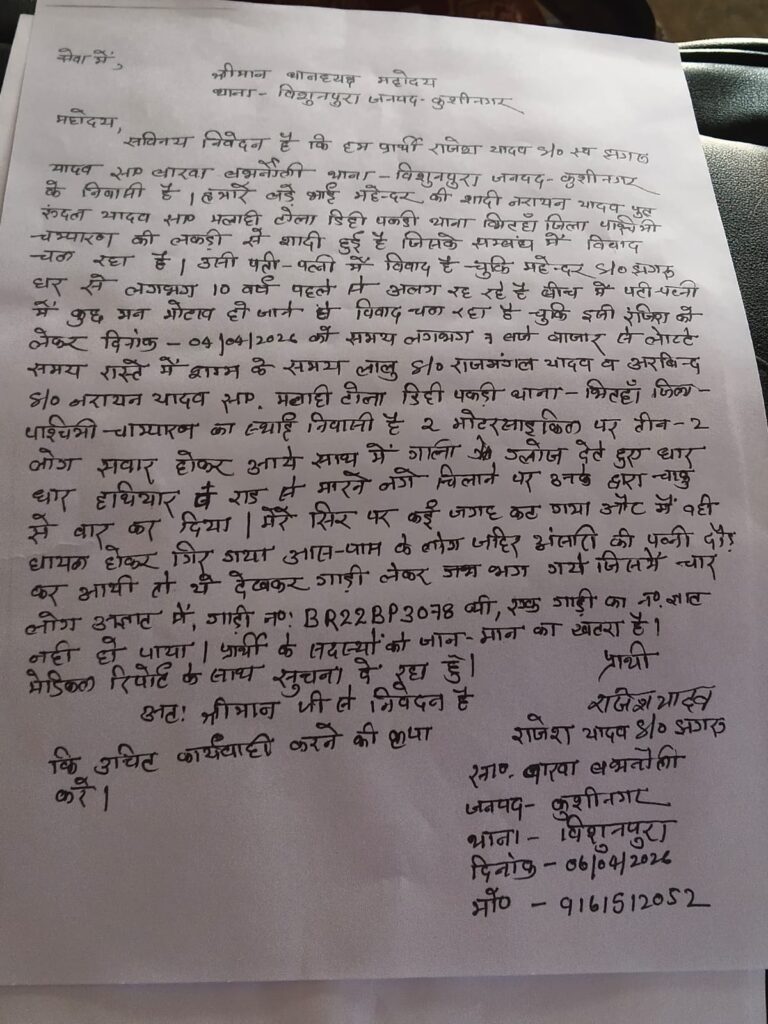 सेवा में,
श्रीमान थानाध्यक्ष महोदय
थाना - विशुनपुरा जनपद - कुशीनगर
महोदय,
सविनय निवेदन है कि हम प्रार्थी राजेश यादव S/O स्व झगरू
यादव सा० बारवा बभनौली थाना - विशुनपुरा जनपद - कुशीनगर
के निवासी है। हमारे बड़े भाई महेन्दर की शादी नरायन यादव पुत्र
रुंदल यादव सा० मलाही टोला डिही पकड़ी थाना भितहाँ जिला पश्चिमी
चम्पारण की लकड़ी से शादी हुई है जिसके सम्बंध में विवाद
चल रहा है। उसी पती-पत्नी में विवाद है चुकि महेन्दर S/O झगरू
घर से लगभग 10 वर्ष पहले से अलग रह रहे है बीच में पती-पत्नी
में कुछ मन मोटाव हो जाने से विवाद चल रहा है चुकि इसी रंजिश को
लेकर दिनांक - 04/04/2026 को समय लगभग 7 बजे बाजार से लौटते
समय रास्ते में शाम के समय लालु S/O राजमंगल यादव व अरबिन्द
S/O नरायन यादव सा०. मलाही टोला डिही पकड़ी थाना - भितहाँ जिला-
पश्चिमी-चम्पारण का स्थाई निवासी है 2 मोटरसाइकिल पर तीन-2
लोग सवार होकर आये साथ में गाली गलोज देते हुए धार
धार हथियार व राड से मारने लगे चिलाने पर उनके द्वारा चाकु
से वार कर दिया। मेरे सिर पर कई जगह कट गया और मैं वही
घायल होकर गिर गया आस-पास के लोग जहिर अंसारी की पत्नी दौड़
कर आयी तो ये देखकर गाड़ी लेकर सब भग गये जिसमें चार
लोग अज्ञात में, गाड़ी न०: BR22BP3078 थी, एक गाड़ी का न० ज्ञात
नही हो पाया। प्रार्थी के सदस्यों को जान-माल का खतरा है।
मेडिकल रिपोर्ट के साथ सुचना दे रहा हुं।
प्रार्थी
अतः श्रीमान जी से निवेदन है
राजेश यादव
कि उचित कार्यवाही करने की कृपा
राजेश यादव S/O झगरू
करें।
सा०. बारवा बभनौली
जनपद - कुशीनगर
थाना - विशुनपुरा
दिनांक - 06/04/2026
मो० - 9161512052